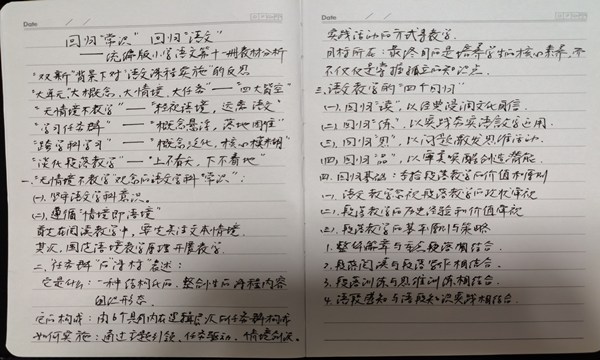 Date
回归“常识” 回归“语文”
——统编版小学语文第十一册教材分析
“双新”背景下对“语文课程实施”的反思
“大单元，大概念，大情境，大任务”——“四大皆空”
“无情境不教学”——“轻视语境，远离语文”
“学习任务群”——“概念悬浮，落地困难”
“跨学科学习”——“概念泛化，核心模糊”
“淡化段落教学”——“上不着天，下不着地”
一、“无情境不教学”观念的语文学科“常识”：
(一)、坚守语文学科意识。
(二)、遵循“情境即语境”
首先在阅读教学中，要先关注文本情境。
其次，围绕语境教学原理开展教学。
二、“任务群”的“清材”表述：
它是什么：一种结构化的，整合性的课程内容
组织形态。
它的构成：由6个具有内在逻辑层次的任务群构成
如何实施：通过主题引领、任务驱动、情境创设、
Date
实践活动的方式等教学。
目标所在：最终目的是培养学生的核心素养，而
不仅仅是掌握孤立的知识点。
三、语文教学的“四个回归”
(一)、回归“读”，以经典浸润文化自信。
(二)、回归“练”，以实践夯实语言文字运用。
(三)、回归“思”，以问题激发思维活动。
(四)、回归“品”，以审美实践创造潜能。
四、回归基础：手拾段落教学的价值和原则
(一)、语文教学忽视段落教学的现状审视
(二)、段落教学的历史经验和价值审视
(三)、段落教学的基本原则与策略
1. 整体解章与言段落相结合。
2. 段落阅读与段落写作相结合。
3. 段落训练与思维训练相结合。
4. 语段感知与语段知识实践相结合。